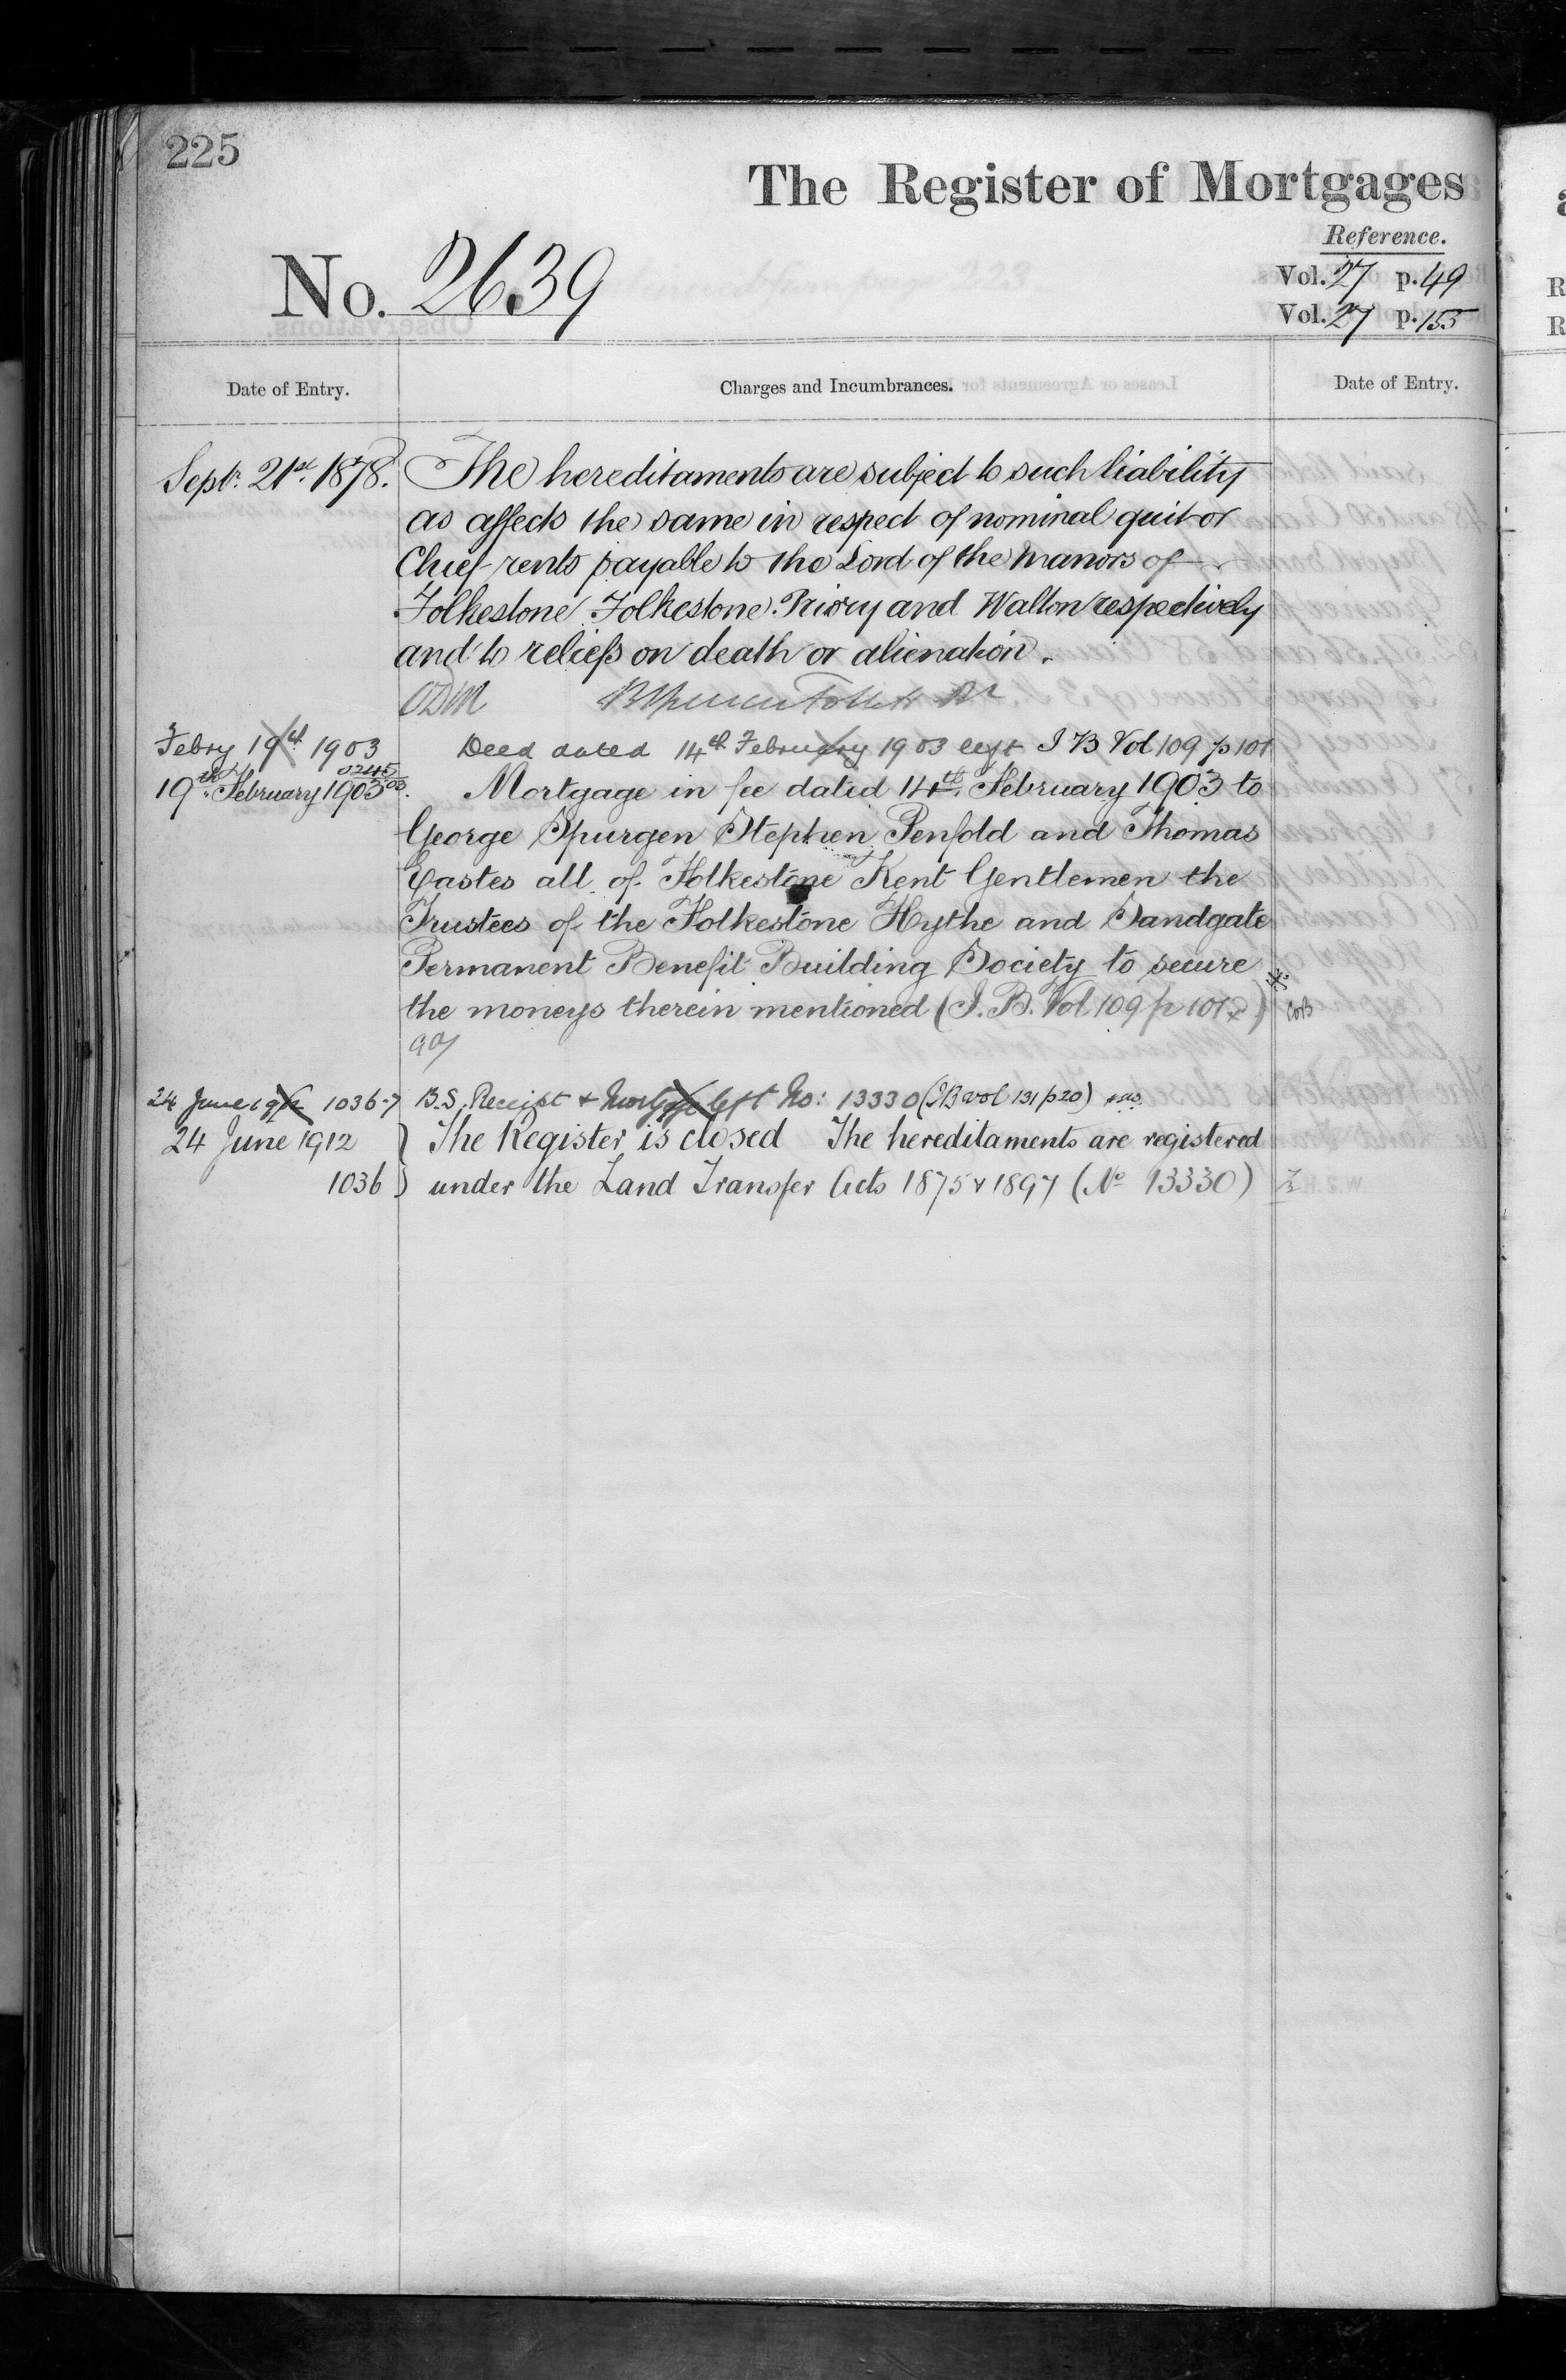 225
The Register of Mortgages
Reference.
No. 2639
Vol. 27 p. 49
Vol. 27 p. 155
Date of Entry.
Charges and Incumbrances.
Date of Entry.
Septr. 21st. 1878. The hereditaments are subject to such liability
as affects the same in respect of nominal quit or
Chief rents payable to the Lord of the Manors of
Folkestone Folkestone Priory and Walton respectively
and to reliefs on death or alienation.
ODM
Febry 19th 1903 Deed dated 14th February 1903 left I B Vol 109 p 101
0245/03
19th. February 1903. Mortgage in fee dated 14th. February 1903 to
George Spurgen Stephen Penfold and Thomas
Eastes all of Folkestone Kent Gentlemen the
Trustees of the Folkestone Hythe and Sandgate
Permanent Benefit Building Society to secure
the moneys therein mentioned (I. B. Vol 109 p 101)
24 June 1912 1036-7 B.S. Receipt + Mortgage left No: 13330 (IB vol 131 p 20)
24 June 1912 } The Register is closed The hereditaments are registered
1036 } under the Land Transfer Acts 1875 & 1897 (No 13330)